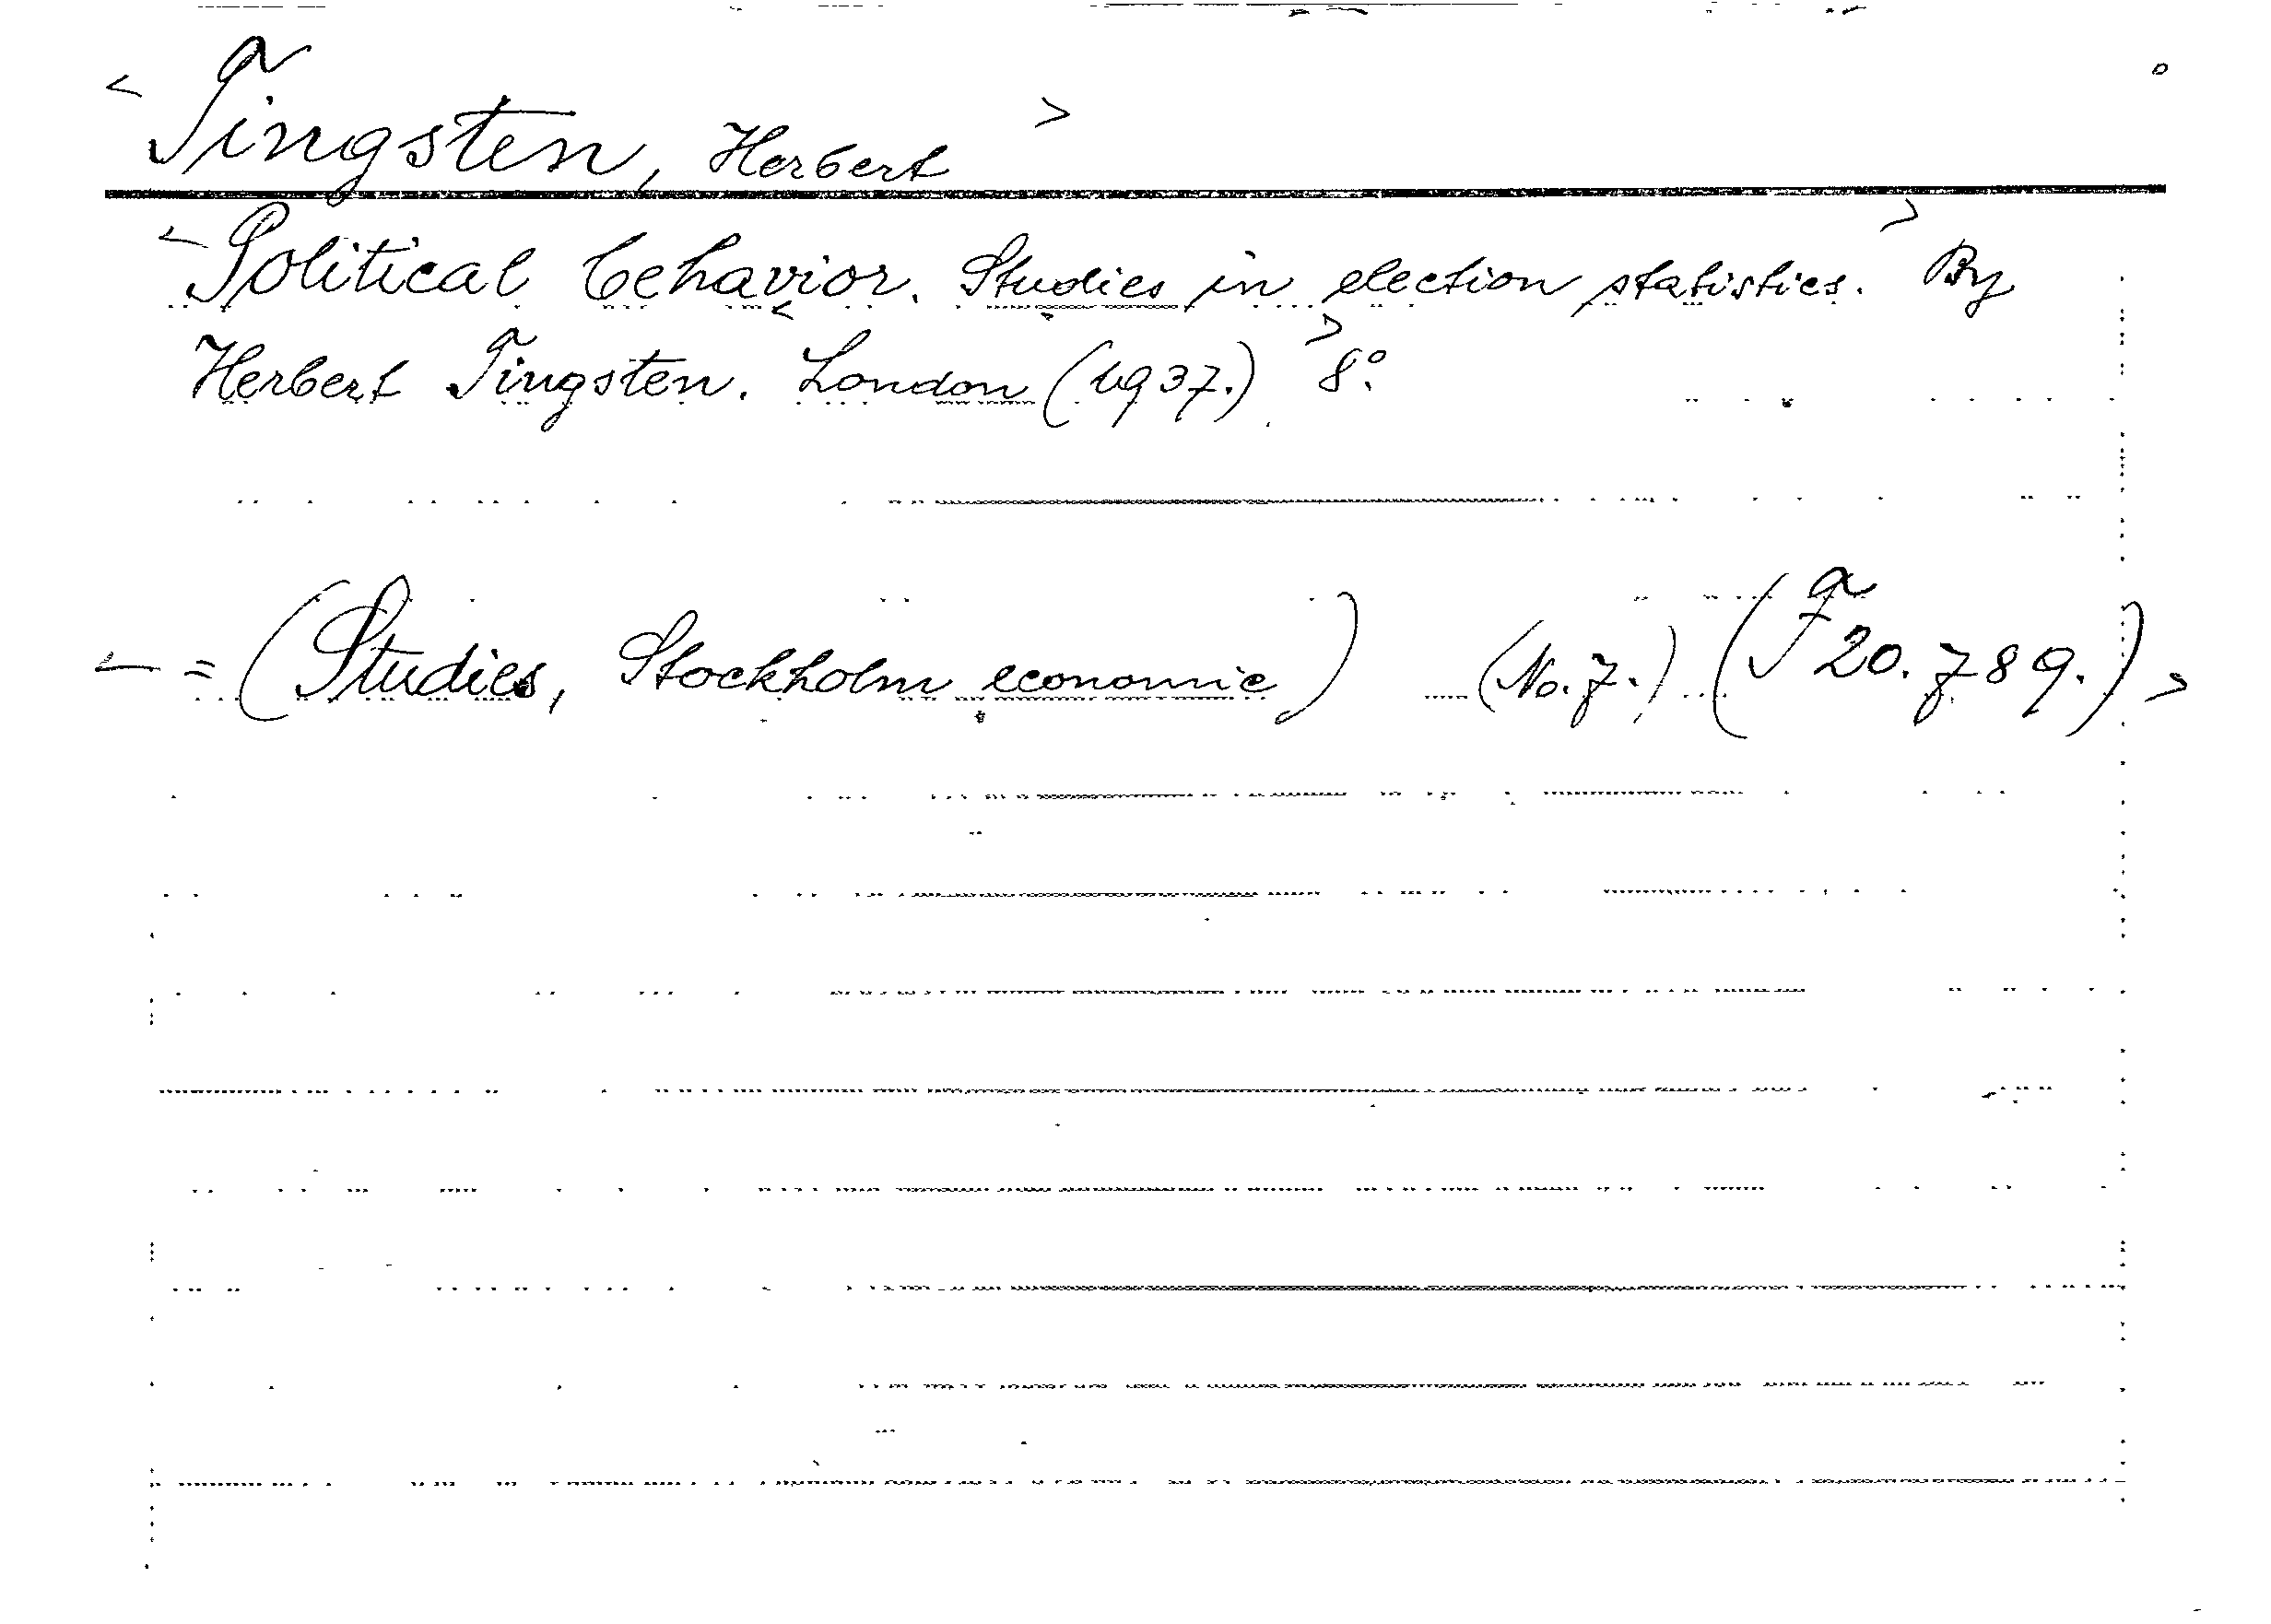 < Tingsten, Herbert >
< Political behavior. Studies in election statistics. > By
Herbert Tingsten. < London (1937.) > 8º.
< = (Studies, Stockholm economic) (No. 7.) (F 20.789.) >